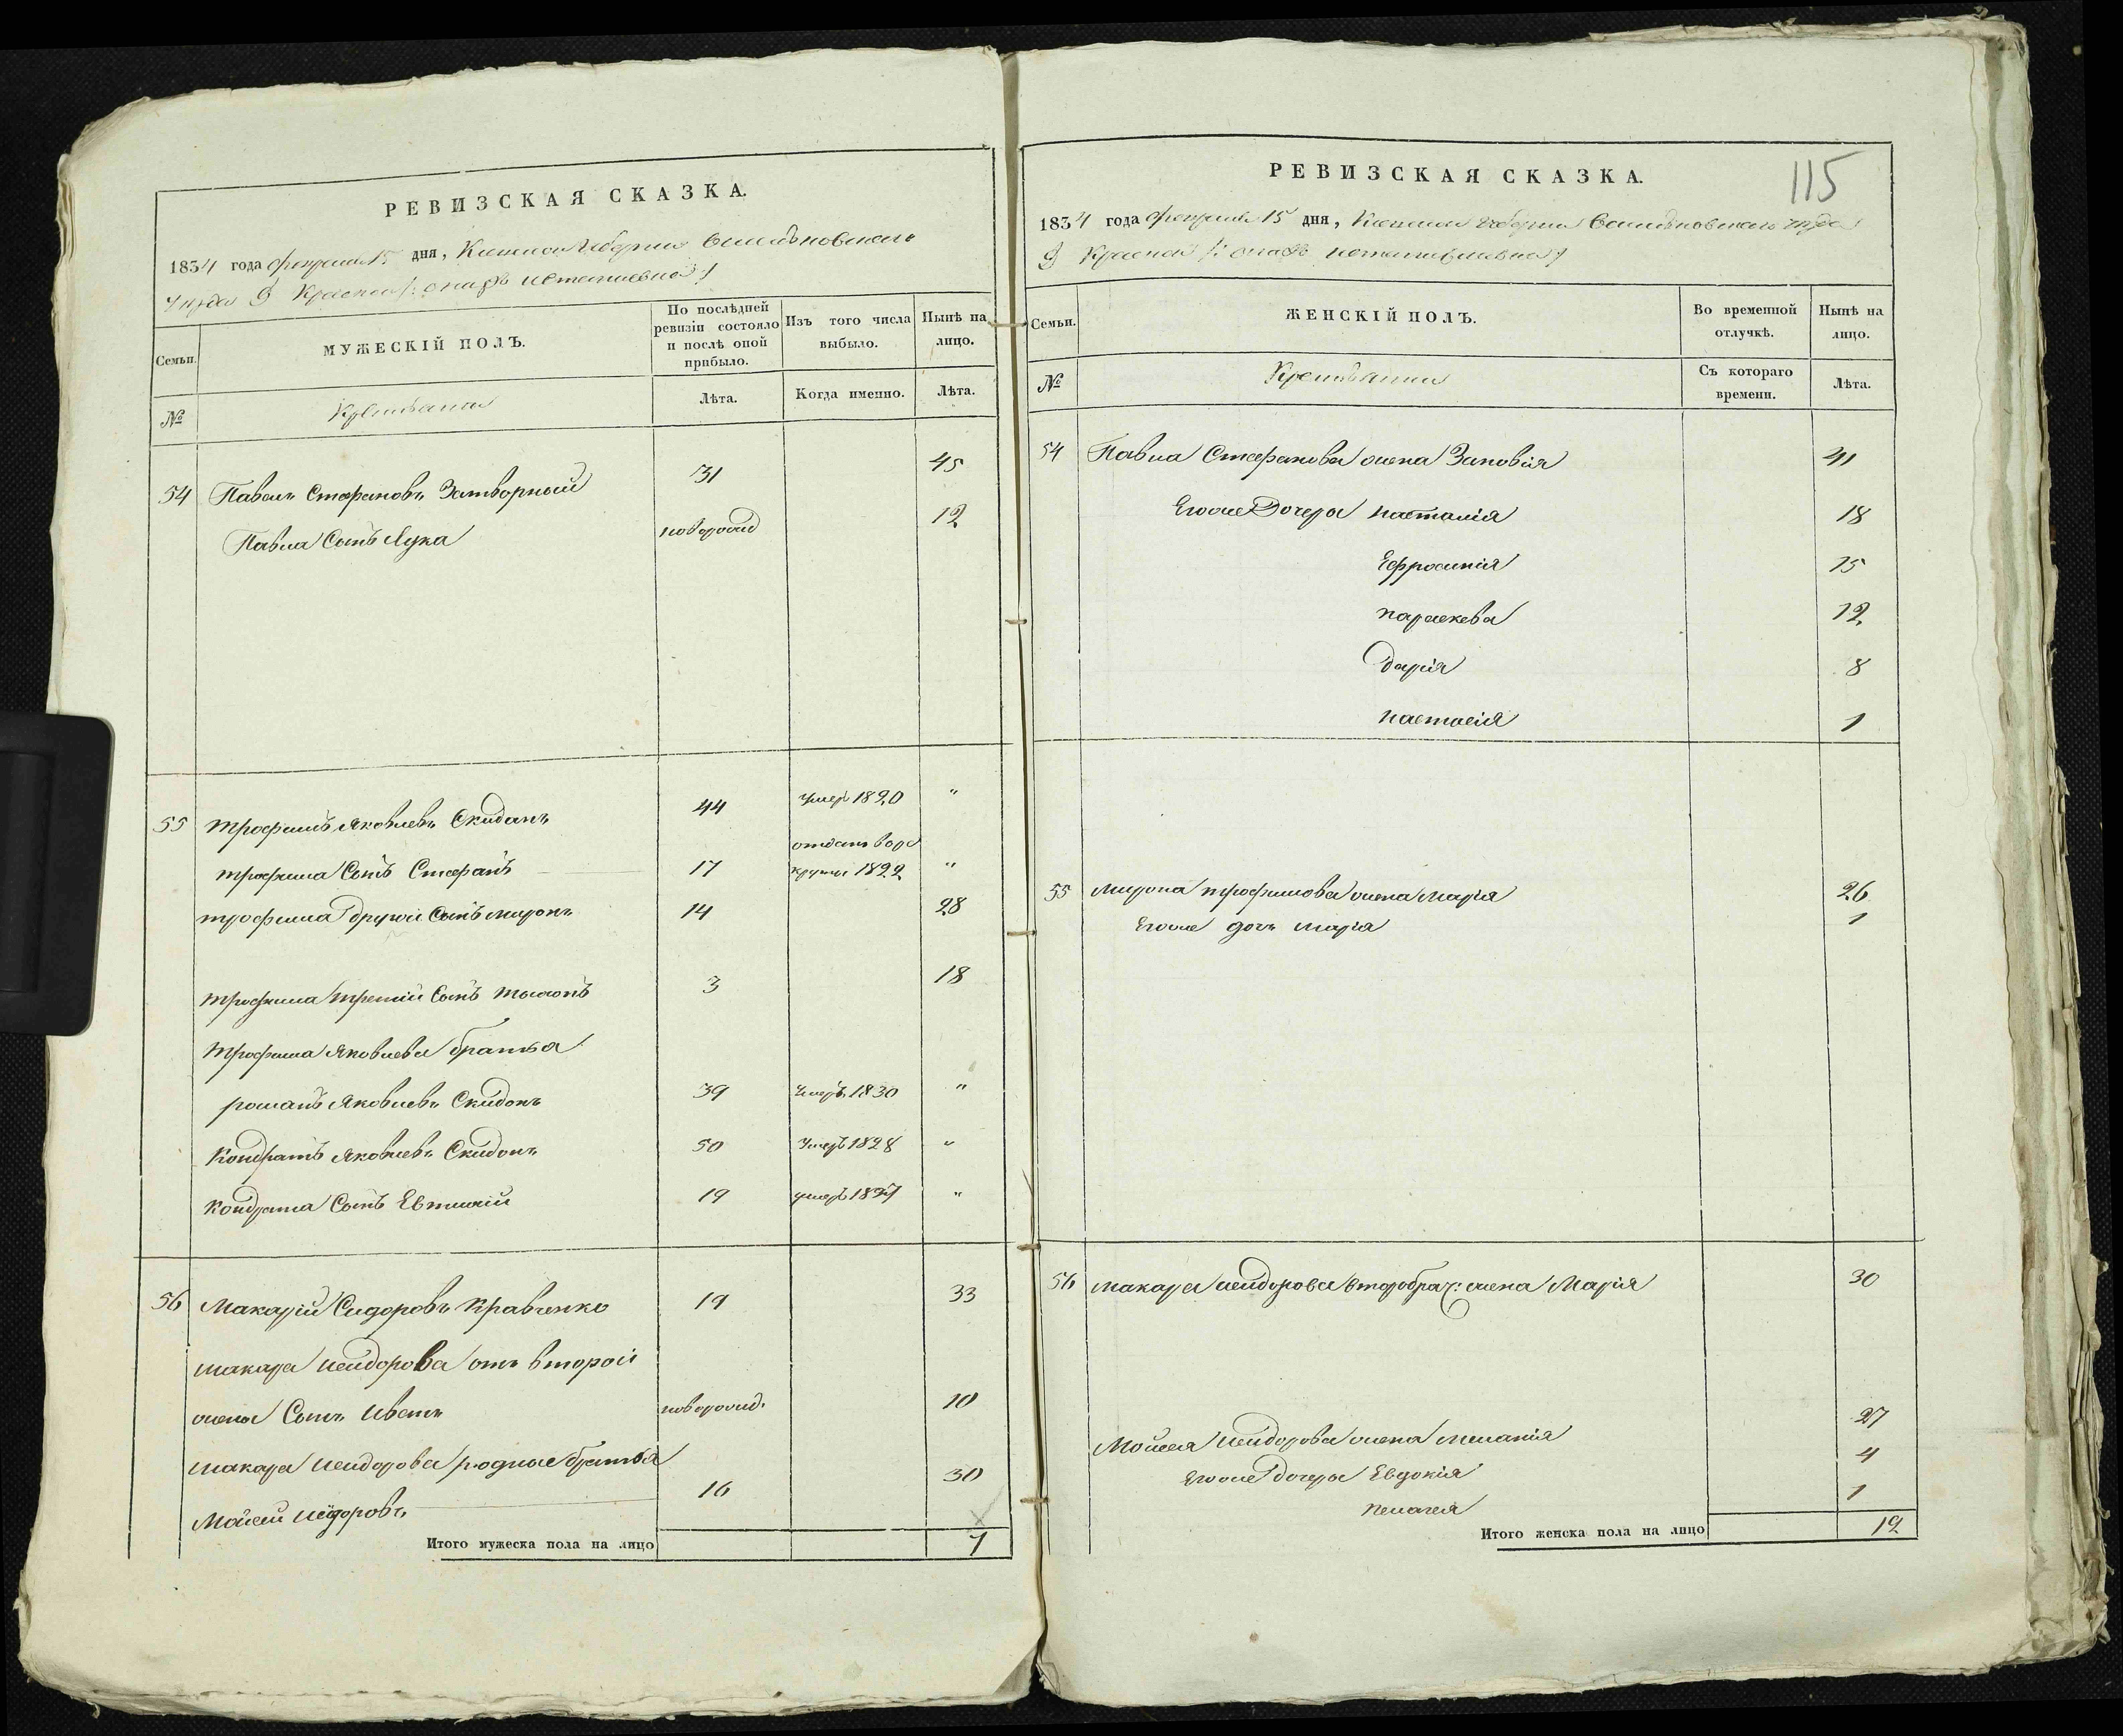 РЕВИЗСКАЯ СКАЗКА.
1834 года февраля 15 дня, Киевской Губернии
уезда Д Красной
Семьи.
МУЖЕСКІЙ ПОЛЪ.
По послѣдней ревизіи состояло и послѣ оной прибыло.
Изъ того числа выбыло.
Нынѣ на лицо.
№
Крестьяне
Лѣта.
Когда именно.
Лѣта.
54 Павелъ Стефановъ Затворный 31 45
Павла Сынъ Лука новорожд 12
55 Трофимъ Яковлевъ Скиданъ 44 умеръ 1820 "
отданъ в ре
трофима Сынъ Стефанъ 17 круты 1822 "
трофима другой Сынъ миронъ 14 28
трофима третій Сынъ 3 18
Трофима Яковлева братья
романъ Яковлевъ Скидонъ 39 умеръ 1830 "
Кондратъ Яковлевъ Скидонъ 50 Умеръ 1828 "
Кондрата Сынъ Евтихій 19 умеръ "
56 Макарій Сидоровъ Кравченко 19 33
макара исидорова отъ второй
жены Сынъ Иванъ новорожд. 10
макара исидорова родные братья
Мойсей исидоровъ 16 30
Итого мужеска пола на лицо 7
РЕВИЗСКАЯ СКАЗКА.
115
1834 года февраля 15 дня, Киевской Губернии уезда
Д Красной
Семьи.
ЖЕНСКІЙ ПОЛЪ.
Во временной отлучкѣ.
Нынѣ на лицо.
№
Крестьянки
Съ котораго времени.
Лѣта.
54 Павла Стефанова жена Зиновія 41
Егоже Дочеры наталія 18
Ефросинія 15
параскева 12
дарія 8
настасія 1
55 Мирона трофимова жена марія 26
Егоже дочь марія 1
56 макара исидорова второбрач: жена Марія 30
Мойсея исидорова жена меланія 27
Егоже дочеры Евдокія 4
пелагея 1
Итого женска пола на лицо 12